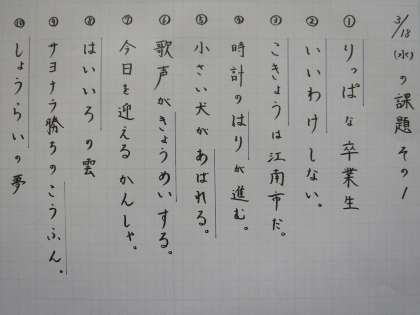 3/18(水)の課題その1
① りっぱな卒業生
② いいわけしない。
③ こきょうは江南市だ。
④ 時計のはりが進む。
⑤ 小さい犬があばれる。
⑥ 歌声がきょうめいする。
⑦ 今日を迎えるかんしゃ。
⑧ はいいろの雲
⑨ サヨナラ勝ちのこうふん。
⑩ しょうらいの夢